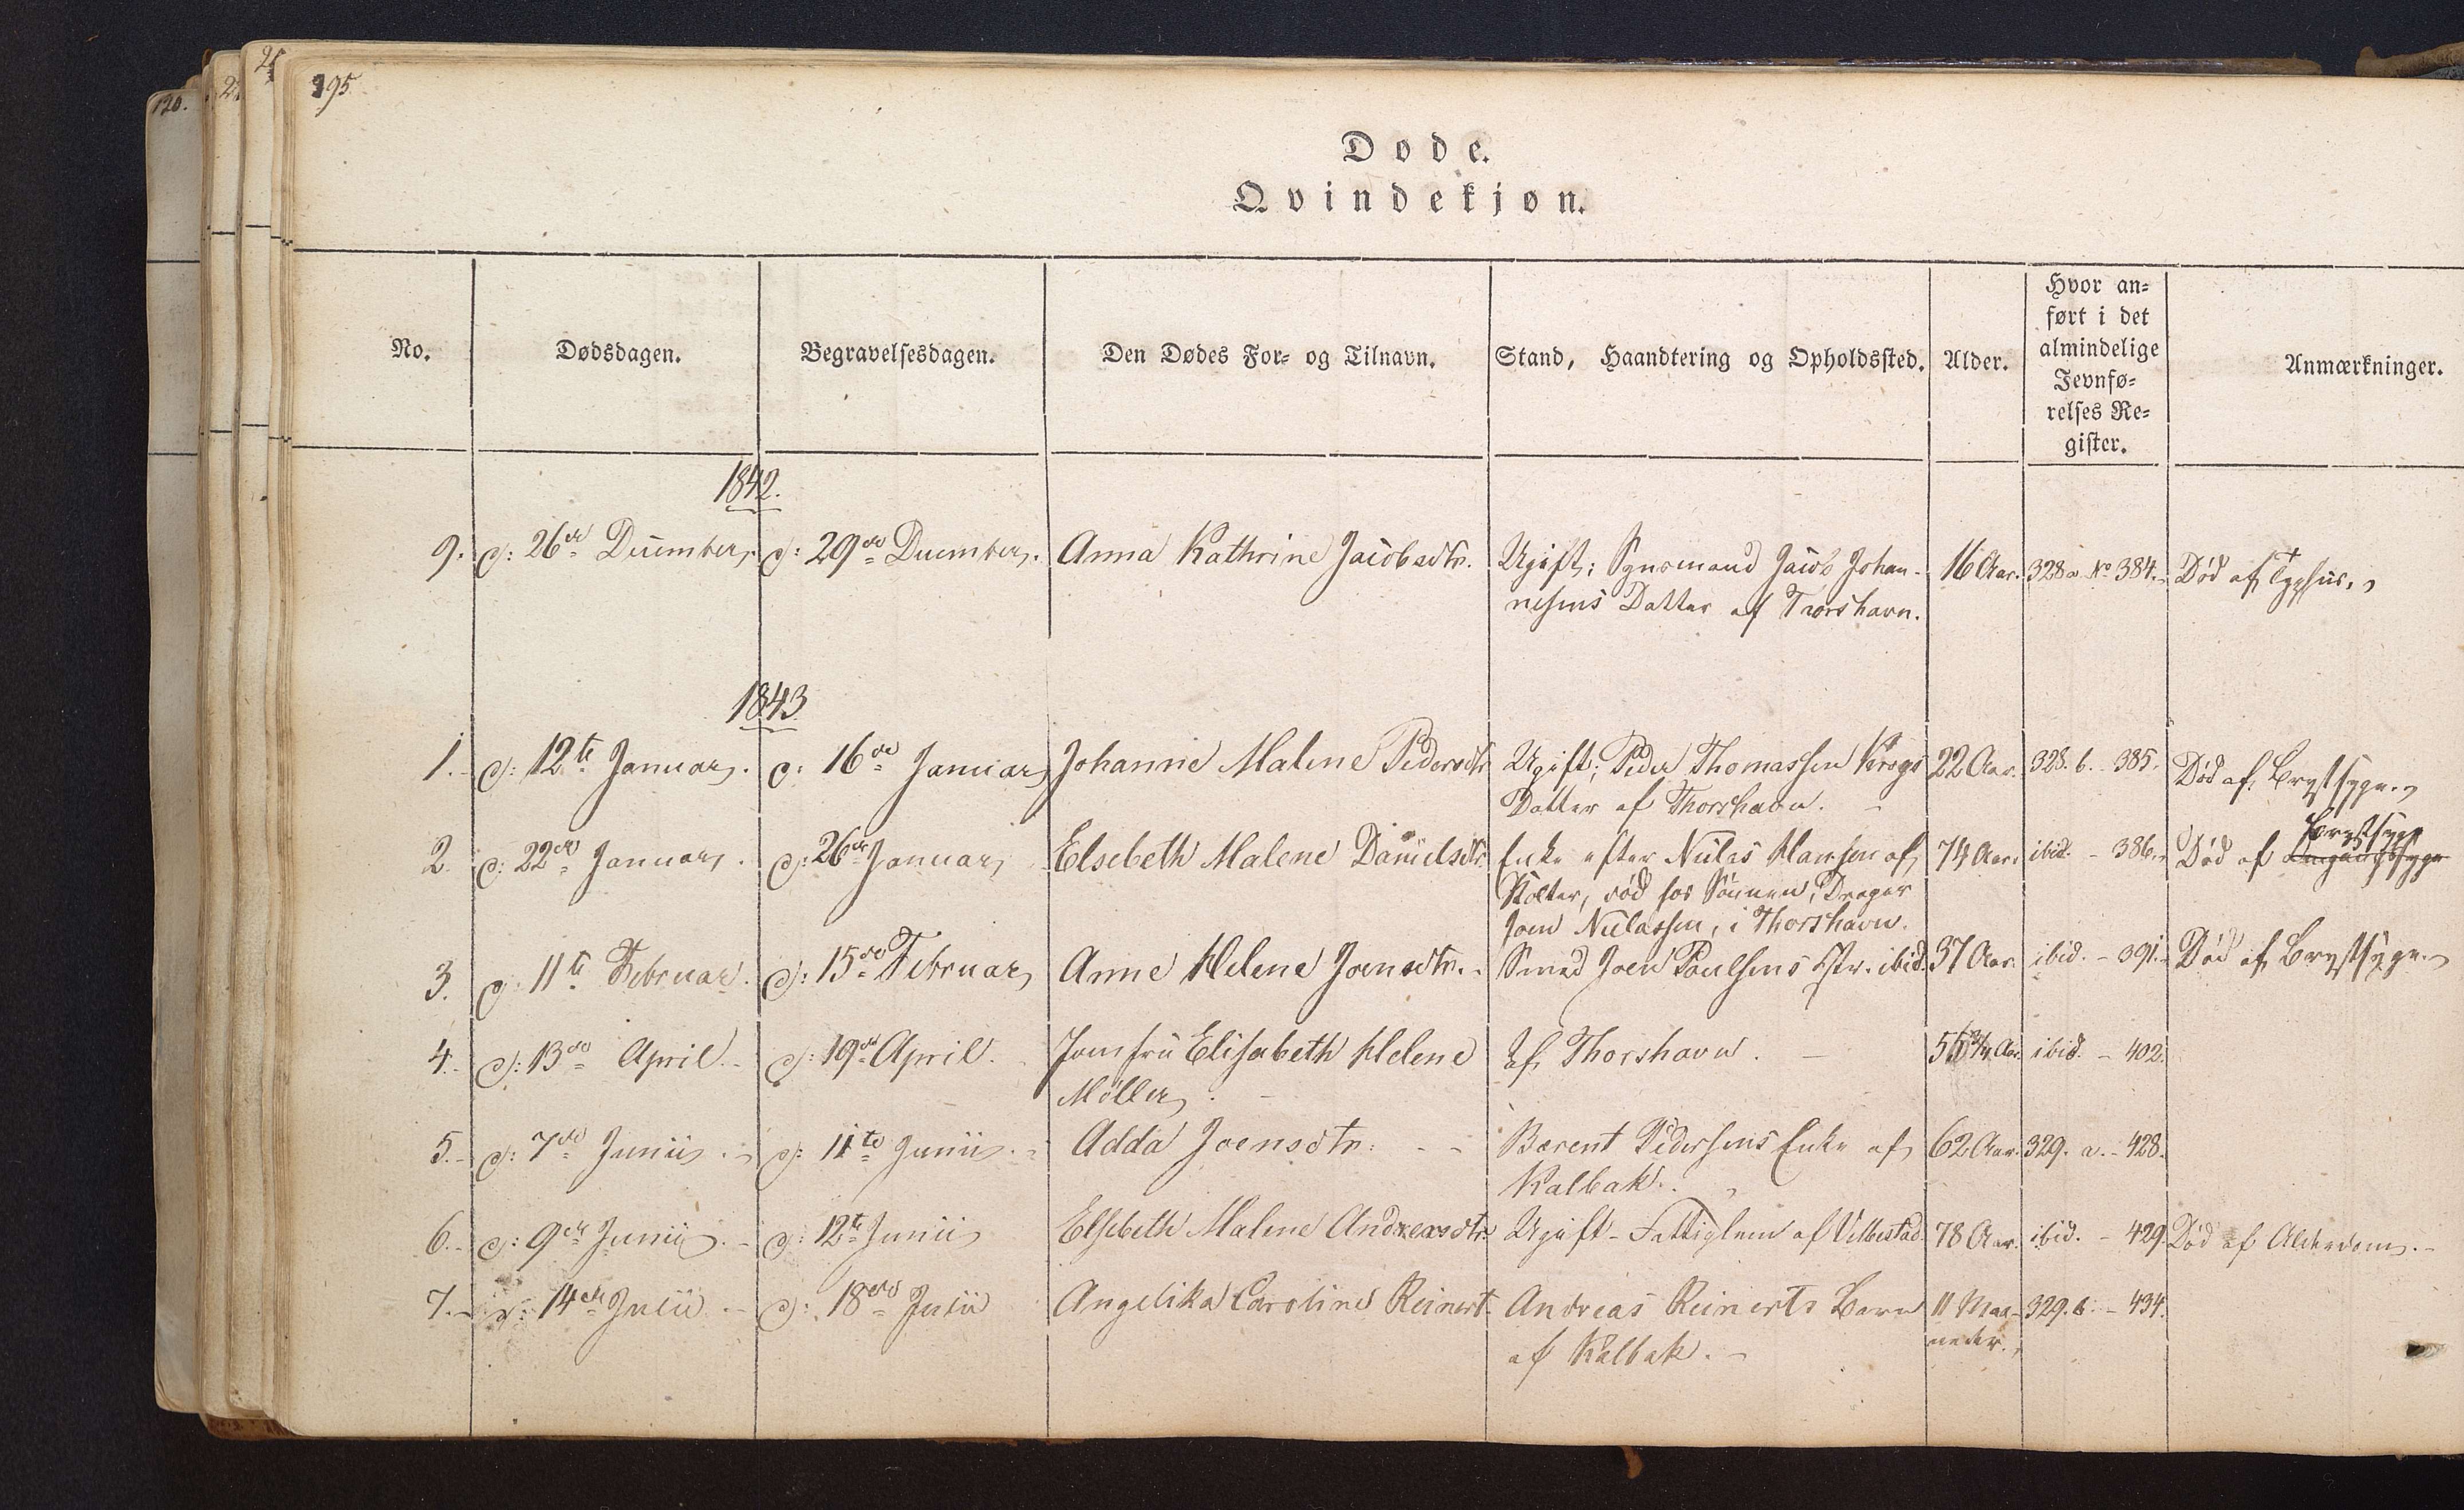 195.
120.
Døde.
Qvindekjøn.
No. Dødsdagen. Begravelsesdagen. Den Dødes For- og Tilnavn. Stand, Haandtering og Opholdssted. Alder. Hvor an-
ført i det
almindelige
Jevnfø-
relses Re-
gister. Anmærkninger.
1842.
9. d: 26de December. d: 29de December. Anna Kathrine Jacobsdtr. Ugift; Synsmand Jacob Johan- 16 Aar. 328 a No 384. Død af Typhus.
nesens Datter af Thorshavn.
1843
1. d: 12te Januar. d: 16de Januar Johanne Malene Pedersdtr Ugift; Peder Thomassen Krogs 22 Aar. 328. b. - 385. Død af Brystsyge.
Datter af Thorshavn.
2. d: 22de Januar. d: 26de Januar Elsebeth Malene Danielsdtr. Enke efter Niclas Hansen af 74 Aar. ibid. - 386. Død af Brystsyge
Kolter, død hos Sönnen, Drager
Joen Niclassen, i Thorshavn.
3. d: 11te Februar. d: 15de Februar Anne Helene Joensdtr. Smed Joen Poulsens Hstr. ibid. 37 Aar. ibid. - 391. Død af Brystsyge.
4. d: 13de April. d: 19de April. Jomfru Elisabeth Helene af Thorshavn. 55 3/4 Aar. ibid. - 402.
Möller.
5. d: 7de Junii. d: 11te Junii. Adda Joensdtr. Berent Pedersens Enke af 62 Aar. 329. a. - 428.
Kalbak.
6. d: 9de Junii. d: 12te Junii Elsebeth Malene Andreasdtr. Ugift - Fattiglem af Velbestad. 78 Aar. ibid. - 429. Død af Alderdom.
7. d: 14de Julii d: 18de Julii Angelika Caroline Reinert Andreas Reinerts Barn 11 Maa- 329. b. - 434.
af Kalbak. neder.